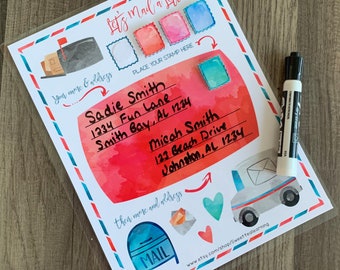 Let's Mail a Letter
PLACE YOUR STAMP HERE
your name & address
Sadie Smith
1234 Fun Lane
Smith Bay, AL 1234
Micah Smith
122 Beach Drive
Johnston, AL 1234
their name and address
MAIL